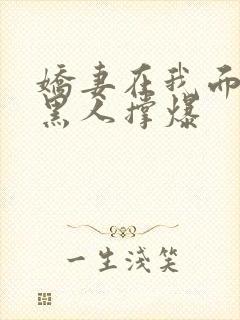 娇妻在我面
黑人撑爆
一生浅笑